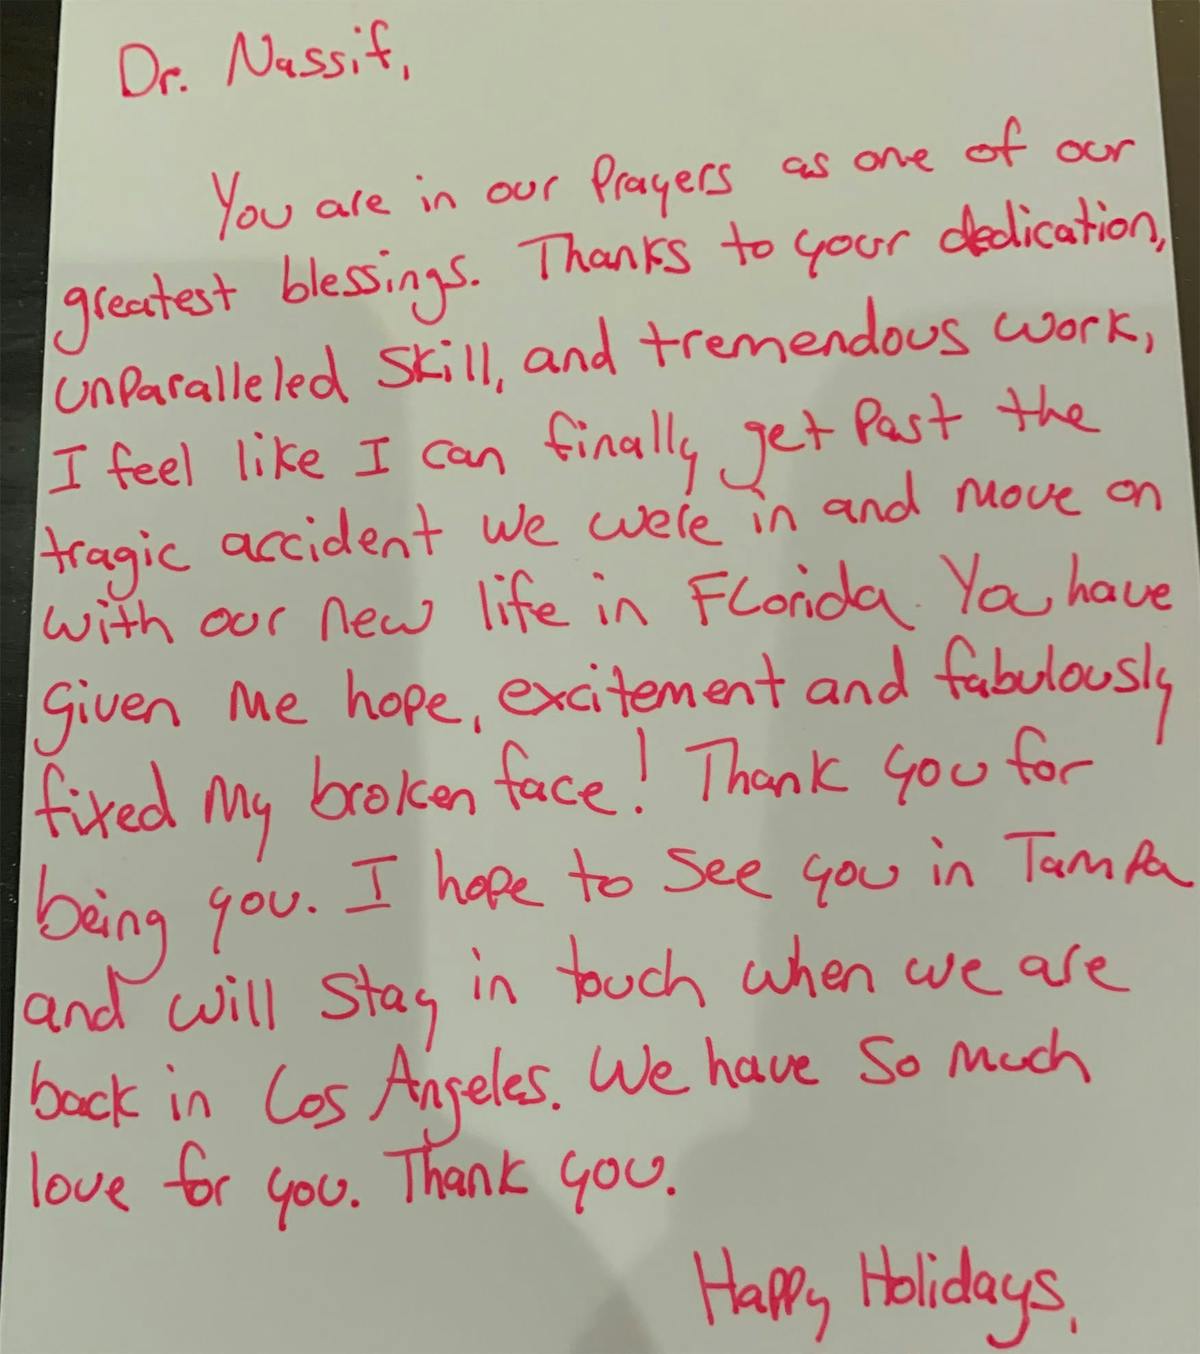 Dr. Nassif,
You are in our Prayers as one of our
greatest blessings. Thanks to your dedication,
unparalleled skill, and tremendous work,
I feel like I can finally get Past the
tragic accident we were in and move on
with our new life in Florida. You have
given me hope, excitement and fabulously
fixed my broken face! Thank you for
being you. I hope to see you in Tampa
and will stay in touch when we are
back in Los Angeles. We have so much
love for you. Thank you.
Happy Holidays,